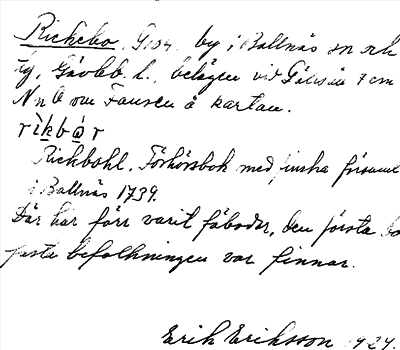 Rickebo, by i Bollnäs sn och
tg, Gävleb. l., belägen vid Gåssån 7 cm
N n O om Fansen å kartan.
rìkbår
Richbohl. Förhörsbok med finska församl
i Bollnäs 1739.
Där har förr varit fäbodar, den första bo
fasta befolkningen var finnar.
Erik Eriksson 1924.